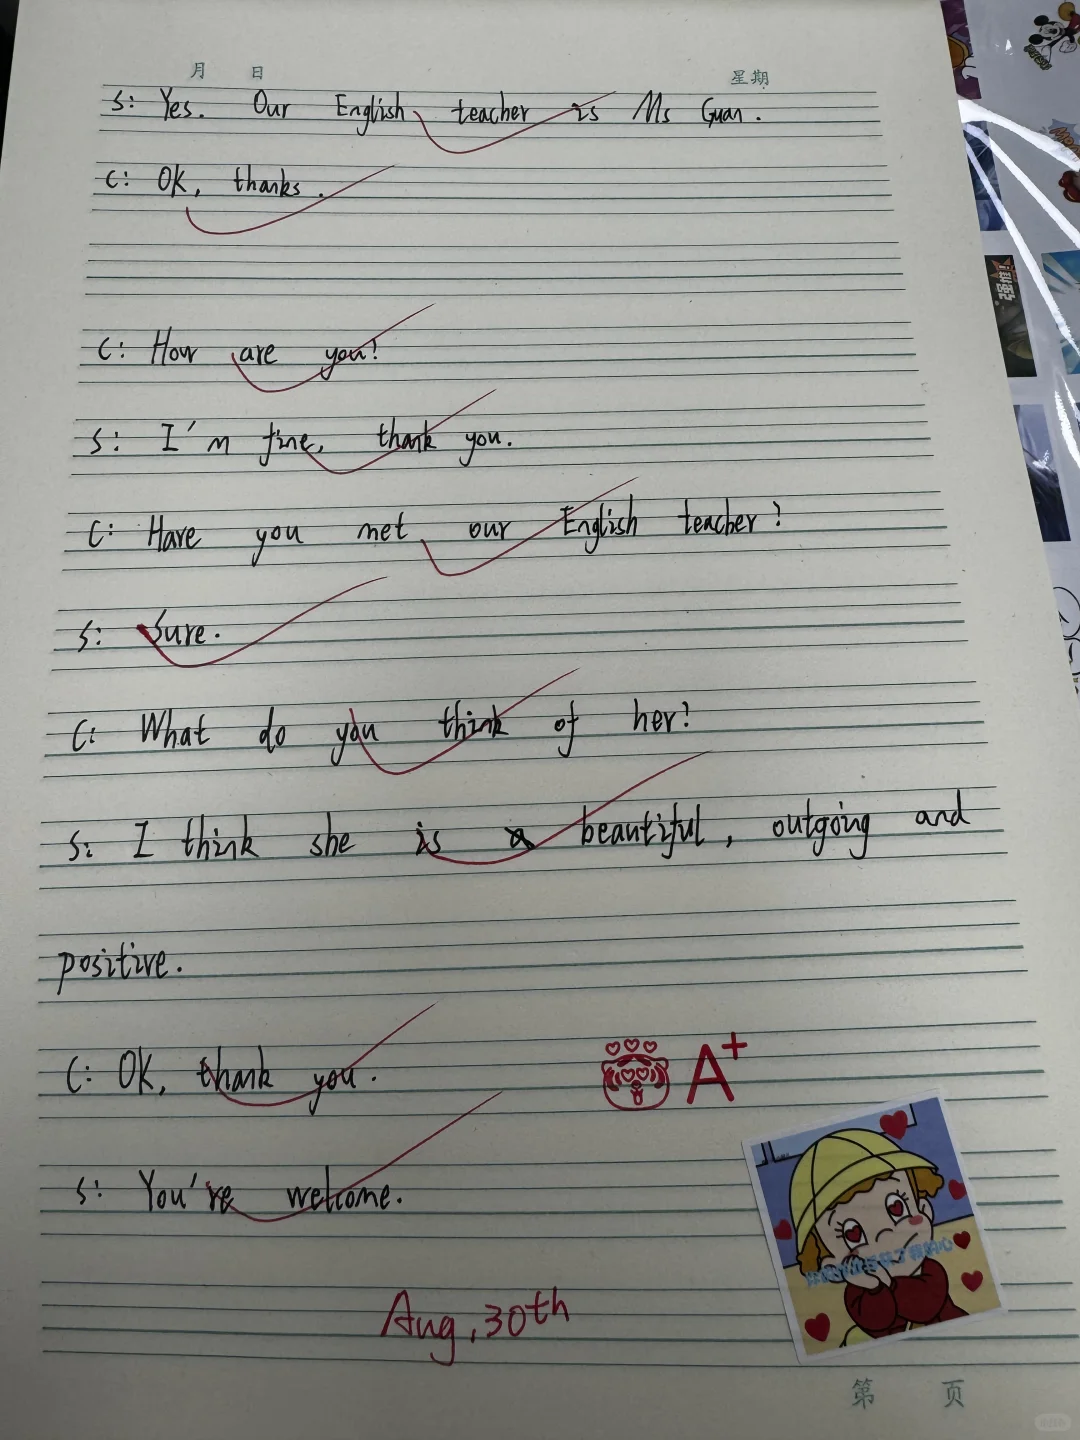 月 日 星期
S: Yes. Our English teacher is Ms Guan.
C: OK, thanks.
C: How are you?
S: I'm fine, thank you.
C: Have you met our English teacher?
S: Sure.
C: What do you think of her?
S: I think she is beautiful, outgoing and
positive.
C: OK, thank you.
A+
S: You're welcome.
Aug, 30th
第 页
强推!!